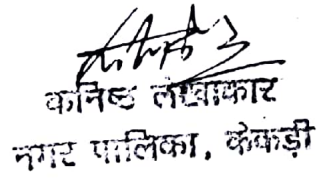 कनिष्ठ लेखाकार
नगर पालिका, केकड़ी